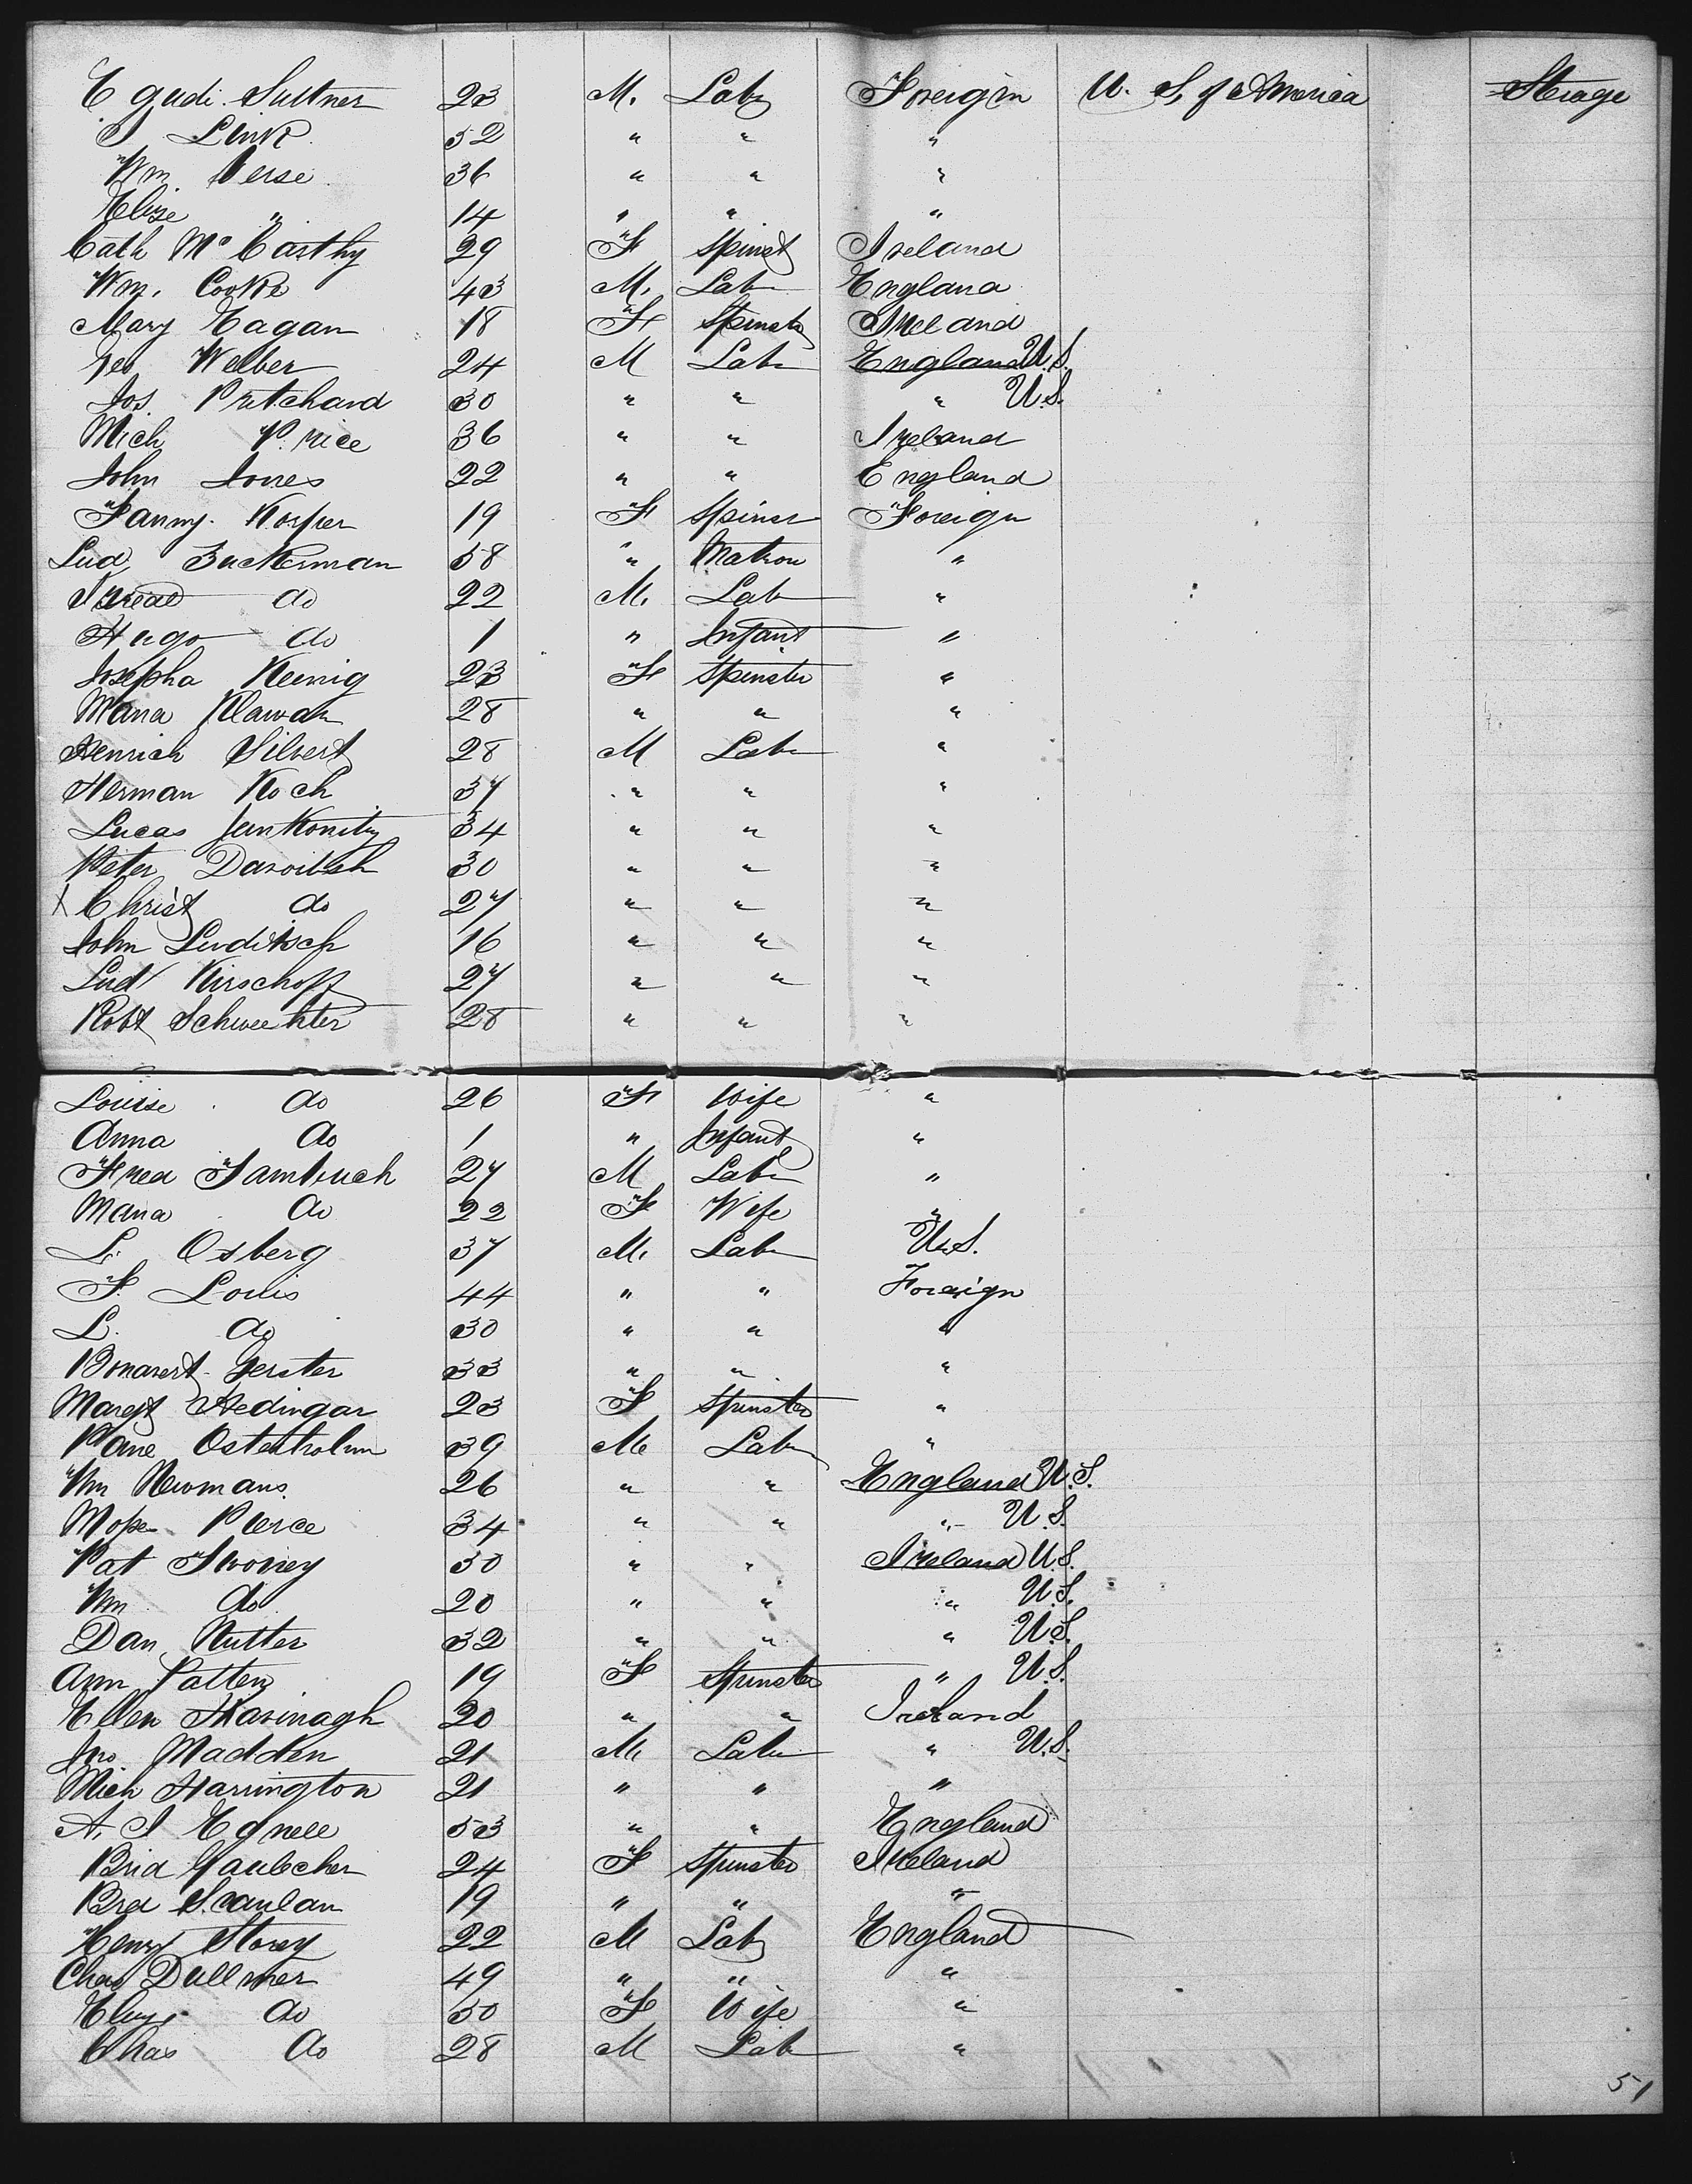 Egudi. Sultner 23 M. Labr Foreign U. S. of America Sterage
J Link 52 " " "
Wm Verse 36 " " "
Elize " 14 " " "
Cath McCarthy 29 F Spinst Ireland
Wm. Cooke 43 M. Labr England
Mary Eagan 18 F Spinstr Ireland
Geo Welber 24 M Labr England U.S.
Jos. Pritchard 30 " " " U.S.
Mich Price 36 " " Ireland
John Jones 22 " " England
Fanny Kosper 19 F Spinsr Foreign
Lud Zuckerman 58 " Matron "
Isreal do 22 M. Lab "
Hugo do 1 " Infant "
Josepha Keinig 23 F Spinster "
Maria 28 " " "
Henrich Silbert 28 M Labr "
Herman Koch 37 " " "
Lucas 34 " " "
Peter Darvitsh 30 " " "
X Christ do 27 " " "
John Luditsch 16 " " "
Lud Kirschoff 27 " " "
Robt Schwechter 28 " " "
Louise do 26 F Wife "
Anna do 1 " Infant "
Fred Sambuch 27 M Labr "
Maria do 22 F Wife "
L. Osberg 37 M. Labr U.S.
F. Louis 44 " " Foreign
L. do 30 " " "
Gerster 33 " " "
Margt Hedingar 23 F Spinster "
Osterholm 39 M Labr "
Wm Newmans 26 " " England U.S.
Mose Pierce 34 " " " U.S.
Pat Twoney 30 " " Ireland U.S.
Wm do 20 " " " U.S.
Dan Nutter 32 " " " U.S.
Ann Patten 19 F Spinster " U.S.
Ellen Kavinagh 20 " " Ireland
Jno Madden 21 M Labr " U.S.
Mich Harrington 21 " " "
A. J Egnell 53 " " England
Brid Gaulecher 24 F Spinster Ireland
Brd Scanlan 19 " " "
Henry Storey 22 M Labr England
Chas Dullmer 49 " " "
Eliz do 50 F Wife "
Chas do 28 M Lab "
51